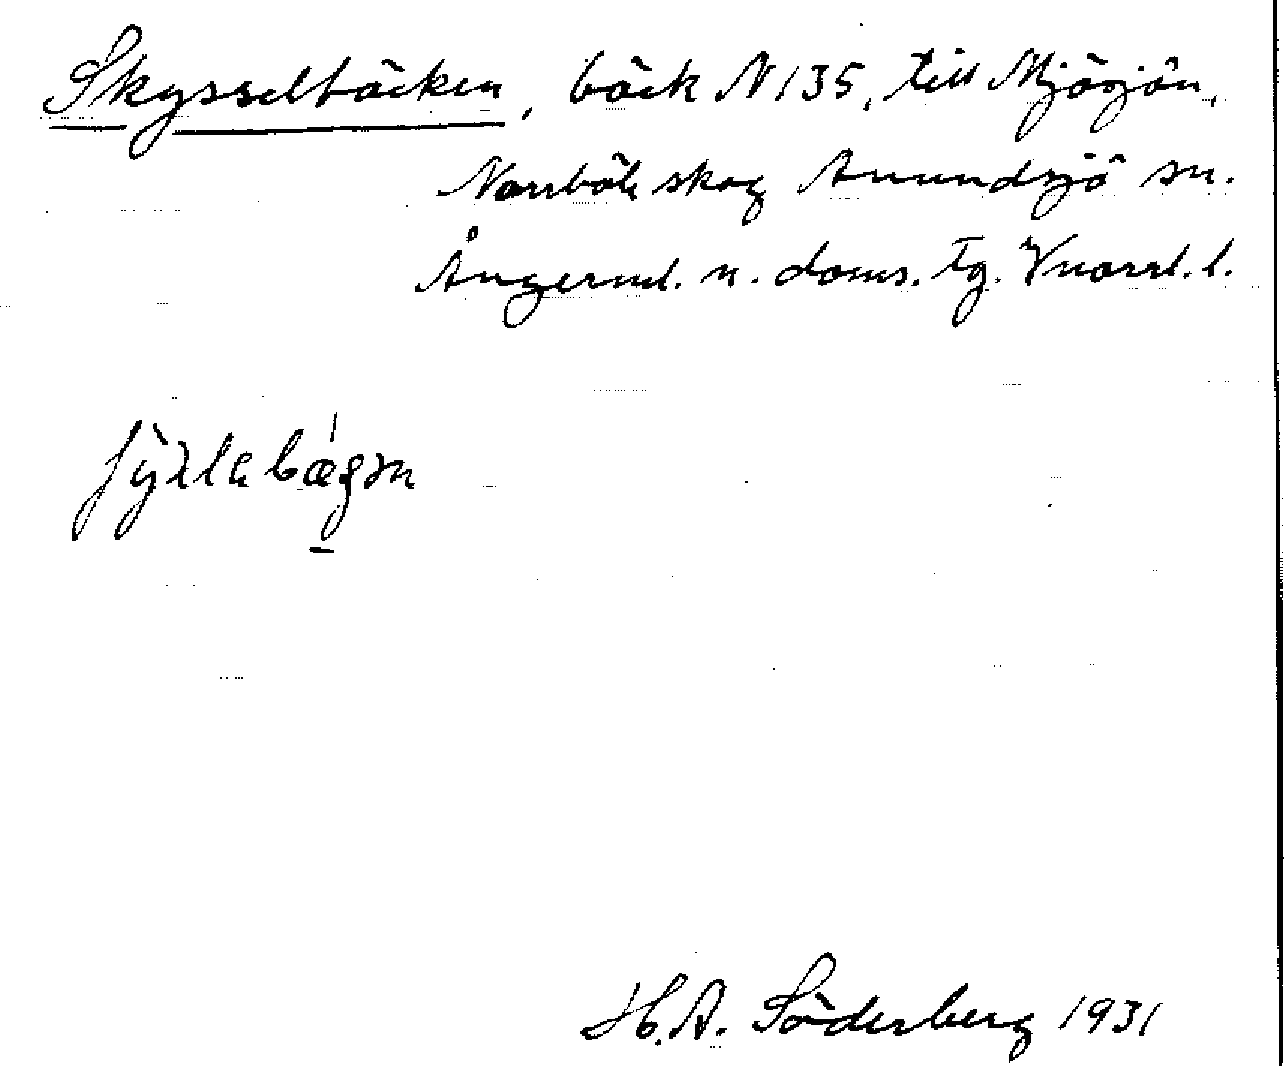 Skysselbäcken, bäck N 135, till Mjösjön,
Norrböle skog Anundsjö sn.
Ångerml. n. doms. tg. Vnorrl. l.
H. A. Söderberg 1931